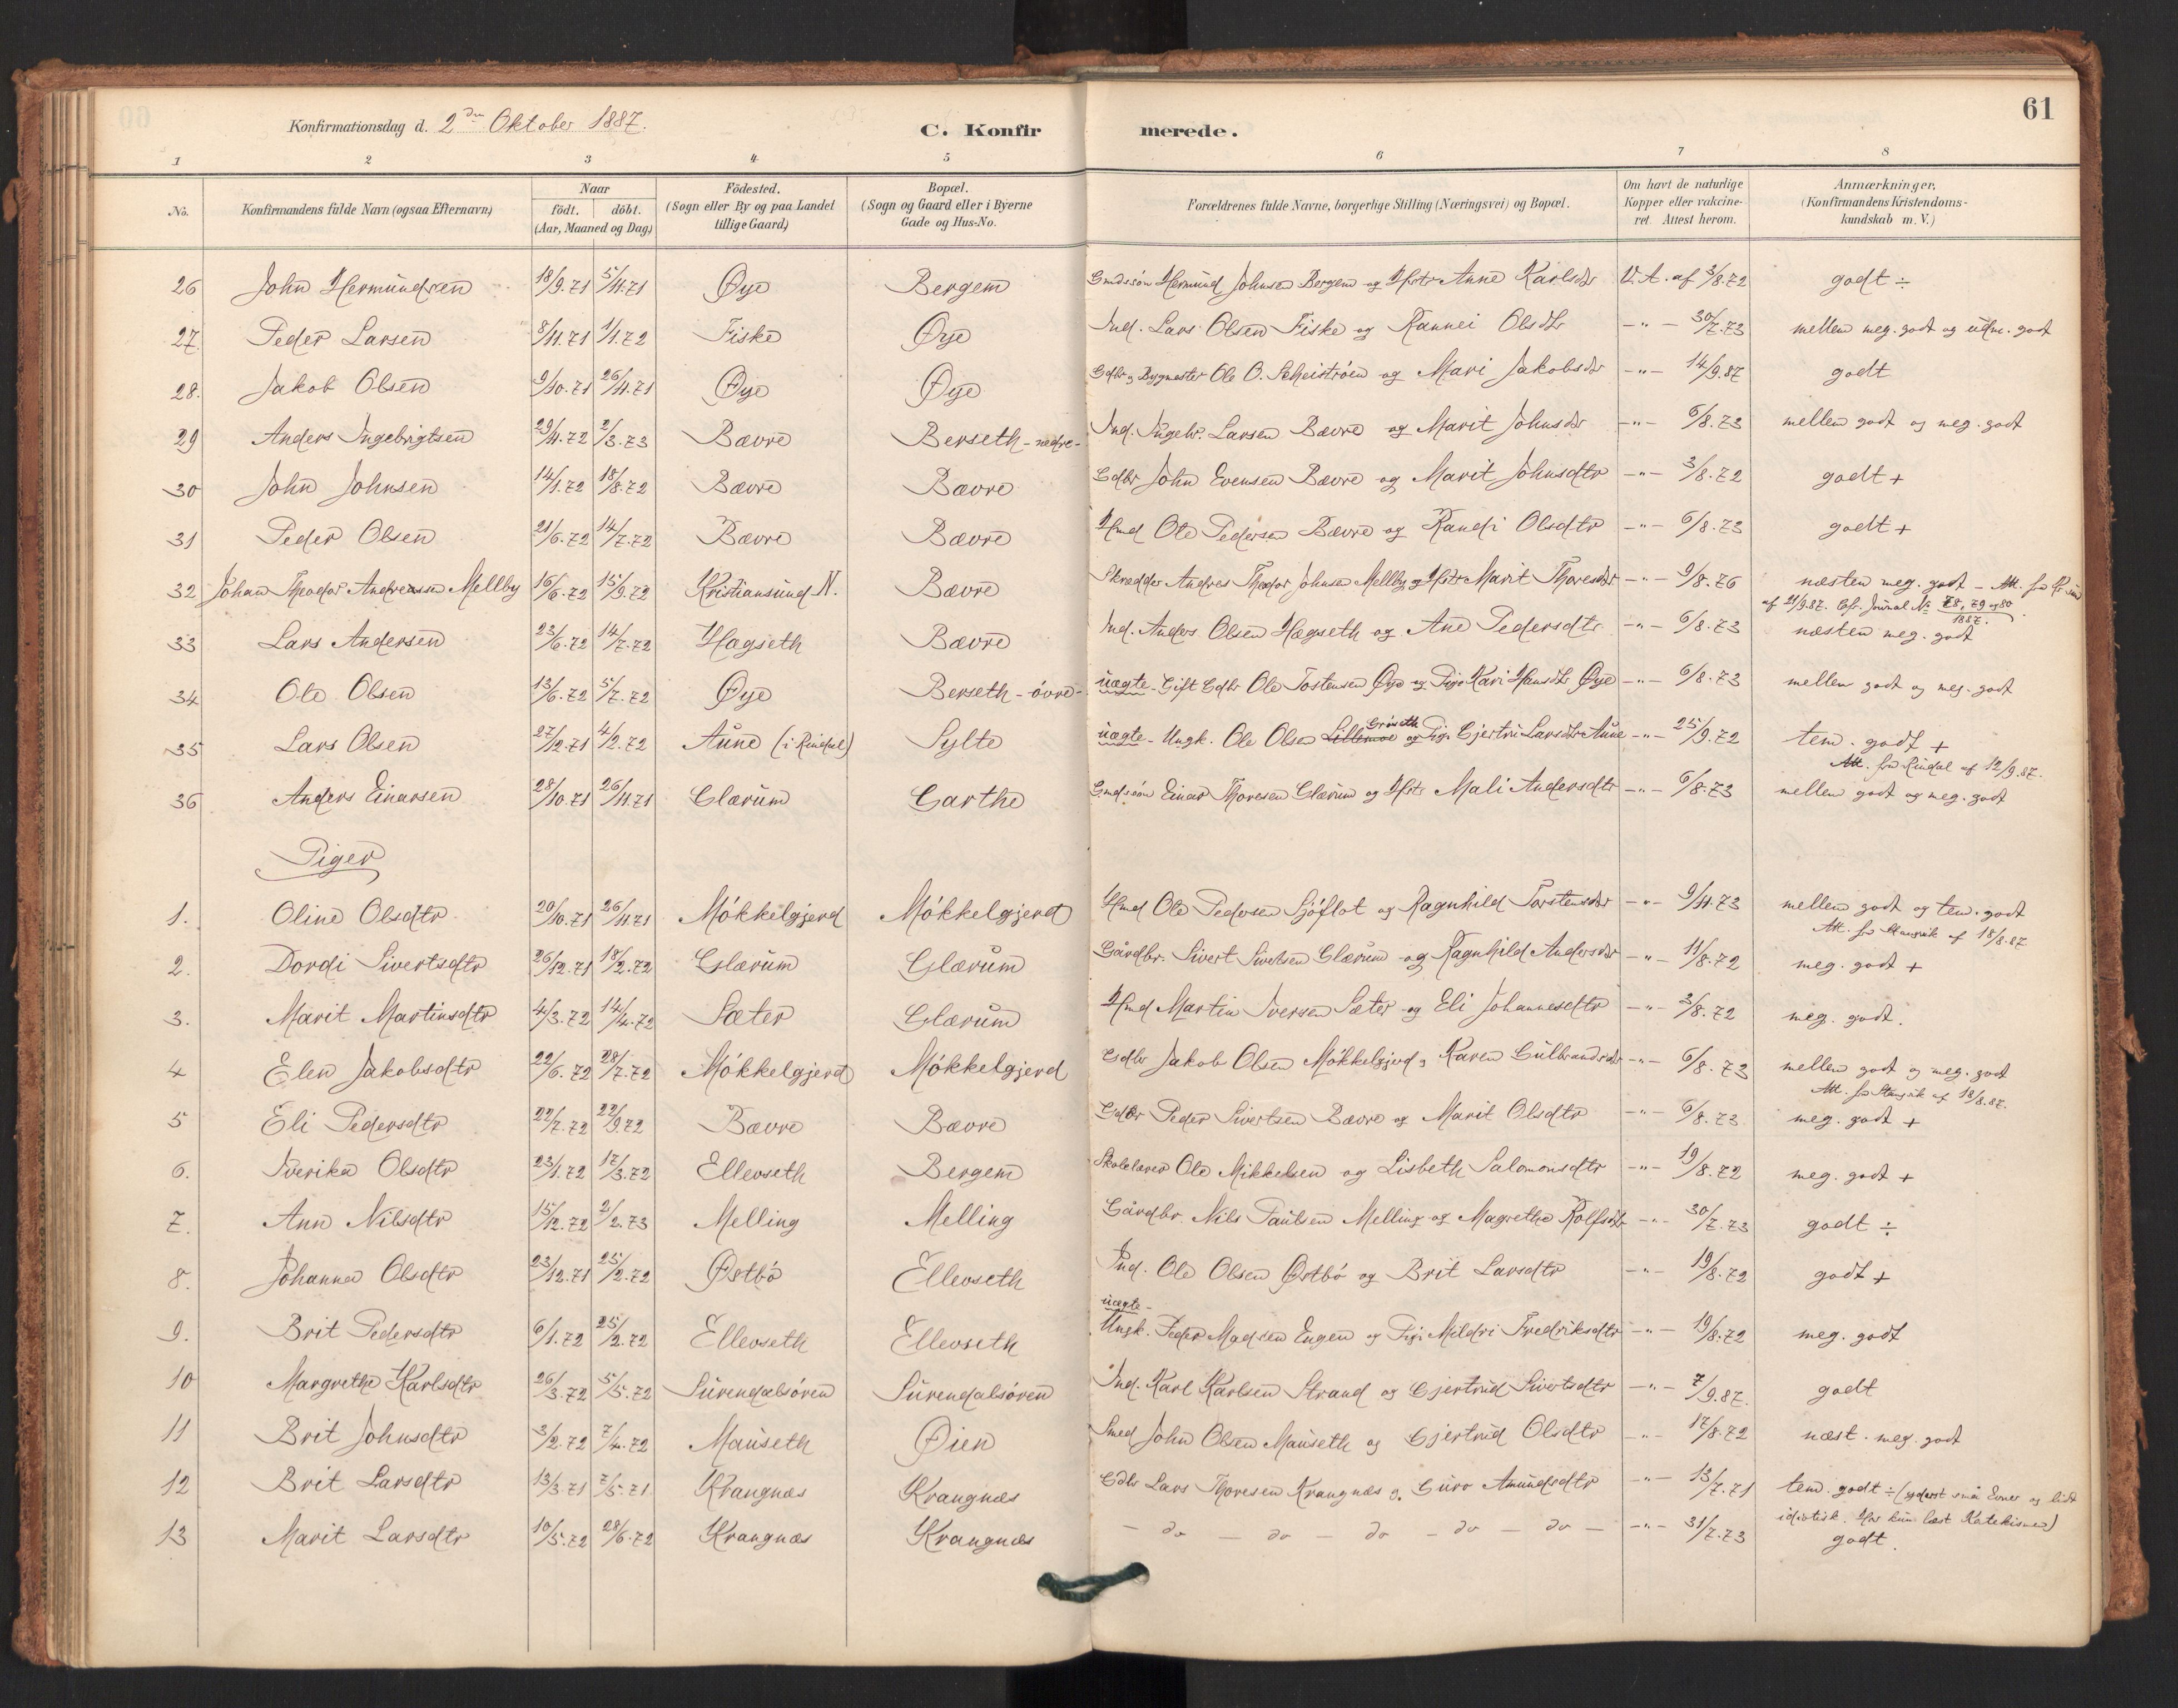 61
Konfirmationsdag d. 2den Oktober 1887.
C. Konfirmerede.
1 2 3 4 5 6 7 8
No. Konfirmandens fulde Navn (ogsaa Efternavn) Naar födt. döbt. (Aar, Maaned og Dag) Födested. (Sogn eller By og paa Landet tillige Gaard) Bopæl. (Sogn og Gaard eller i Byerne Gade og Hus-No. Forældrenes fulde Navne, borgerlige Stilling (Næringsvei) og Bopæl. Om havt de naturlige Kopper eller vakcineret. Attest herom. Anmærkninger. (Konfirmandens Kristendomskundskab m. V.)
26 John Hermundsen 18/9.71 5/11.71 Øye Bergem Gmdsön Hermund Johnsen Bergem og Hstr Anne Karlsdtr V. A. af 3/8.72 godt ÷
27. Peder Larsen 8/11.71 1/1.72 Fiske Øye Ind. Lars Olsen Fiske og Rannei Olsdtr -"- 30/7.73 mellem meg. godt og udm. godt
28. Jakob Olsen 9/10.71 26/11.71 Øye Øye Gdbr og Bygmester Ole O. Skeiströen og Mari Jakobsdtr -"- 14/9.87 godt
29 Anders Ingebrigtsen 29/11.72 2/3.73 Bævre Berseth-nedre- Ind. Ingebr. Larsen Bævre og Marit Johnsdtr -"- 6/8.73 mellem godt og meg. godt
30 John Johnsen 14/1.72 18/8.72 Bævre Bævre Gdbr John Evensen Bævre og Marit Johnsdtr -"- 3/8.72 godt +
31 Peder Olsen 21/6.72 14/7.72 Bævre Bævre Hmd Ole Pedersen Bævre og Randi Olsdtr -"- 6/8.73 godt +
32 Johan Theodor Andreassen Mellby 16/6.72 15/9.72 Kristiansund N. Bævre Skrædder Andreas Theodor Johnsen Mellby og Hstr Marit Thoresdtr -"- 9/8.76 næsten meg. godt - Att. fra Kr.sund
af 21/9.87. Cfr. Journal No 78, 79 og 80
1887.
33 Lars Andersen 23/6.72 14/7.72 Hægseth Bævre Ind. Anders Olsen Hægseth og Ane Pedersdtr -"- 6/8.73 næsten meg. godt
34 Ole Olsen 13/6.72 5/7.72 Øye Berseth-övre- uægte - Gift Gdbr Ole Tostensen Øye og Pige Kari Hansdtr Øye -"- 6/8.73 mellem godt og meg. godt
35 Lars Olsen 27/12.71 4/2.72 Aune (i Rindal) Sylte uægte - Ungk. Ole Olsen Lillemoe Grøseth og Pige Gjertru Larsdtr Aune -"- 25/9.72 tem. godt +
Att. fra Rindal af 12/9.87.
36 Anders Einarsen 28/10.71 26/11.71 Glærum Garthe Gmdsön Einar Thoresen Glærum og Hstr Mali Andersdtr -"- 6/8.73 mellem godt og meg. godt
Piger
1. Oline Olsdtr 20/10.71 26/11.71 Mökkelgjerd Mökkelgjerd Hmd Ole Pedersen Sjöflot og Ragnhild Torstensdtr -"- 9/11.73 mellem godt og tem. godt
Att. fra Stangvik af 18/8.87
2. Dordi Sivertsdtr 26/12.71 18/2.72 Glærum Glærum Gårdbr. Sivert Sivertsen Glærum og Ragnhild Andersdtr -"- 11/8.72 meg. godt +
3. Marit Martinsdtr 4/3.72 14/4.72 Sæter Glærum Hmd Martin Iversen Sæter og Eli Johannesdtr -"- 3/8.72 meg. godt.
4 Elen Jakobsdtr 22/6.72 28/7.72 Mökkelgjerd Mökkelgjerd Gdbr Jakob Olsen Mökkelgjerd og Karen Gulbrandsdtr -"- 6/8.73 mellem godt og meg. godt
Att. fra Stangvik af 18/8.87.
5 Eli Pedersdtr 22/7.72 22/9.72 Bævre Bævre Gdbr Peder Sivertsen Bævre og Marit Olsdtr -"- 6/8.73 meg. godt +
6. Iverika Olsdtr 23/1.72 17/3.72 Ellevseth Bergem Skolelærer Ole Mikkelsen og Lisbeth Salomonsdtr -"- 19/8.72 meg. godt +
7. Ann Nilsdtr 15/12.72 2/2.73 Melling Melling Gårdbr. Nils Paulsen Melling og Magrethe Rolfsdtr -"- 30/7.73 godt ÷
8. Johanna Olsdtr 23/12.71 25/2.72 Østbö Ellevseth Ind. Ole Olsen Østbö og Brit Larsdtr -"- 19/8.72 godt +
9. Brit Pedersdtr 6/1.72 25/2.72 Ellevseth Ellevseth uægte - Ungk. Peder Madsen Engen og Pige Mildri Fredriksdtr -"- 19/8.72 meg. godt
10 Margrethe Karlsdtr 26/3.72 5/5.72 Surendalsören Surendalsören Ind. Karl Karlsen Strand og Gjertrud Sivertsdtr -"- 7/9.87. godt
11 Brit Johnsdtr 3/2.72 7/4.72 Mauseth Øien Smed John Olsen Mauseth og Gjertrud Olsdtr -"- 17/8.72 næst. meg. godt
12 Brit Larsdtr 13/3.71 7/5.71 Krangnæs Krangnæs Gdbr Lars Thoresen Krangnæs og Guro Amundsdtr -"- 13/7.71 tem. godt ÷ (yderst små Evner og lidt
idiotisk. Har kun læst Katekismen)
13 Marit Larsdtr 10/5.72 28/6.72 Krangnæs Krangnæs - do - do - do - do - do - -"- 31/7.73 godt.